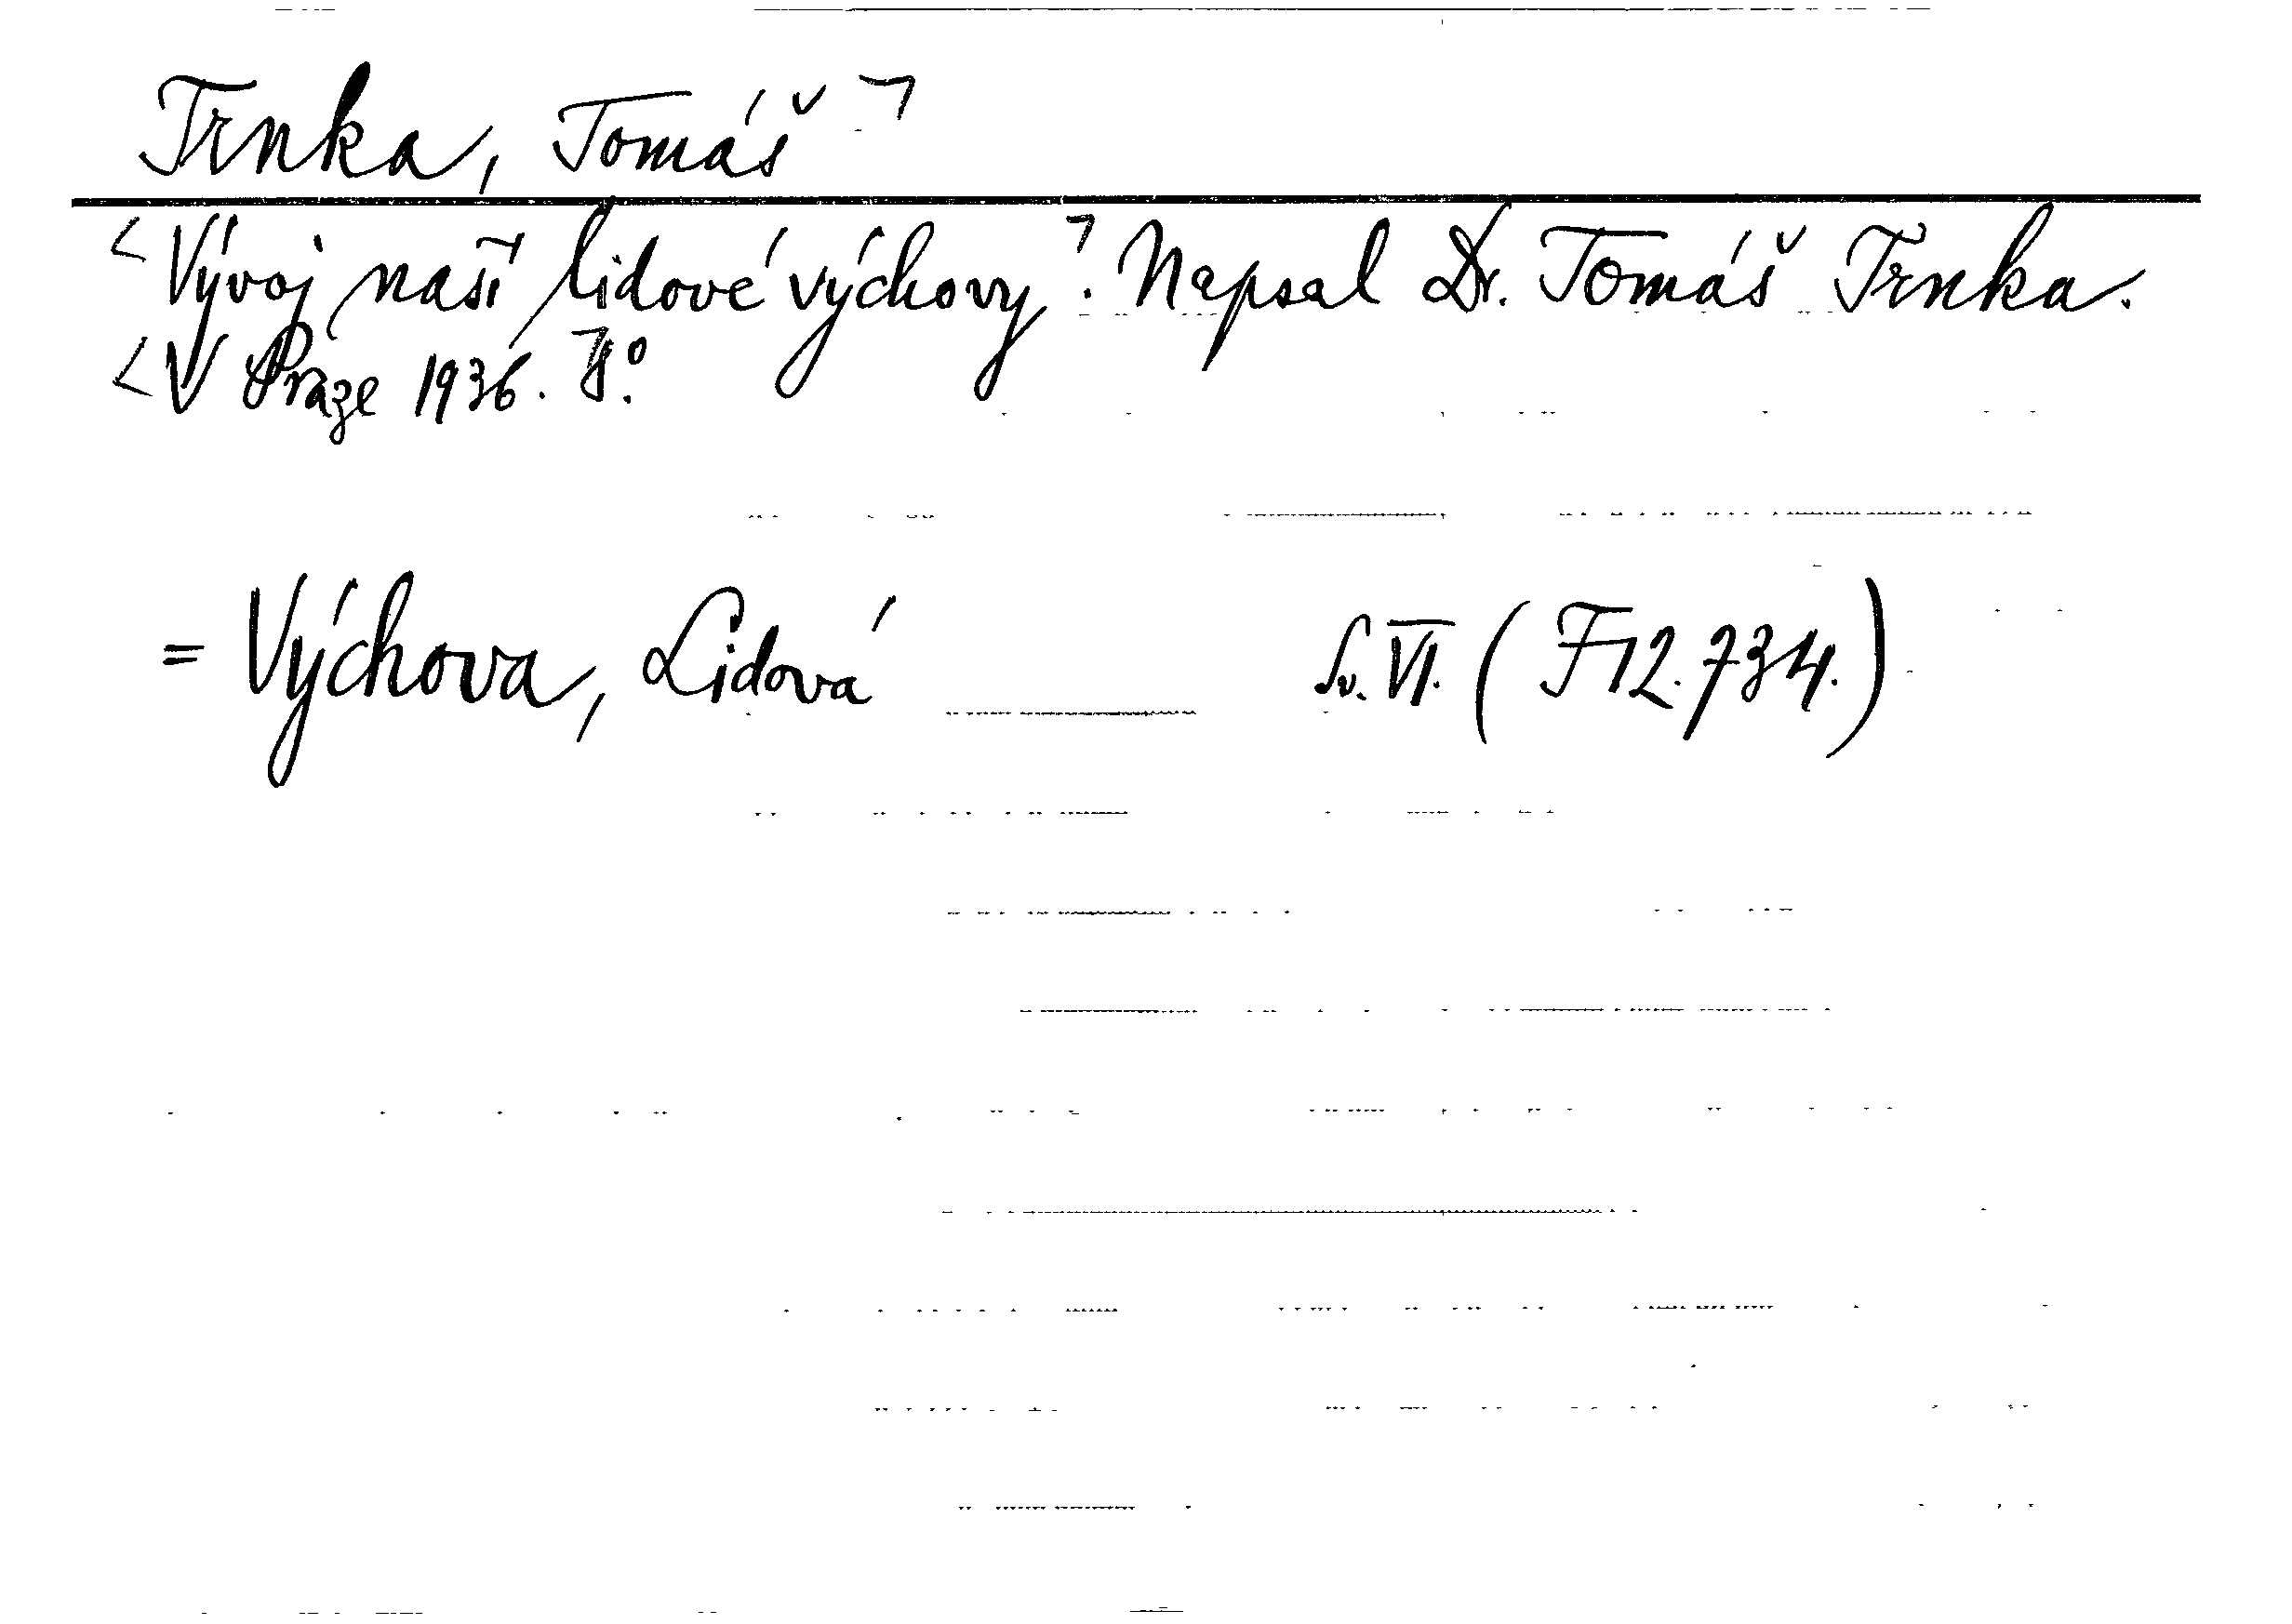 Trnka, Tomáš
Vývoj naší lidové výchovy. Napsal Dr. Tomáš Trnka.
V Praze 1936. 8°.
= Výchova, Lidová Sv. VI. (F 12.734.)